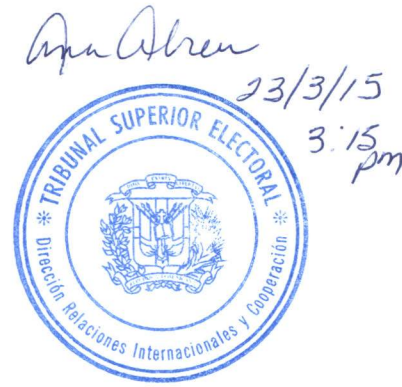 Ana Abreu
23/3/15
3:15
pm
TRIBUNAL SUPERIOR ELECTORAL
Dirección Relaciones Internacionales y Cooperación